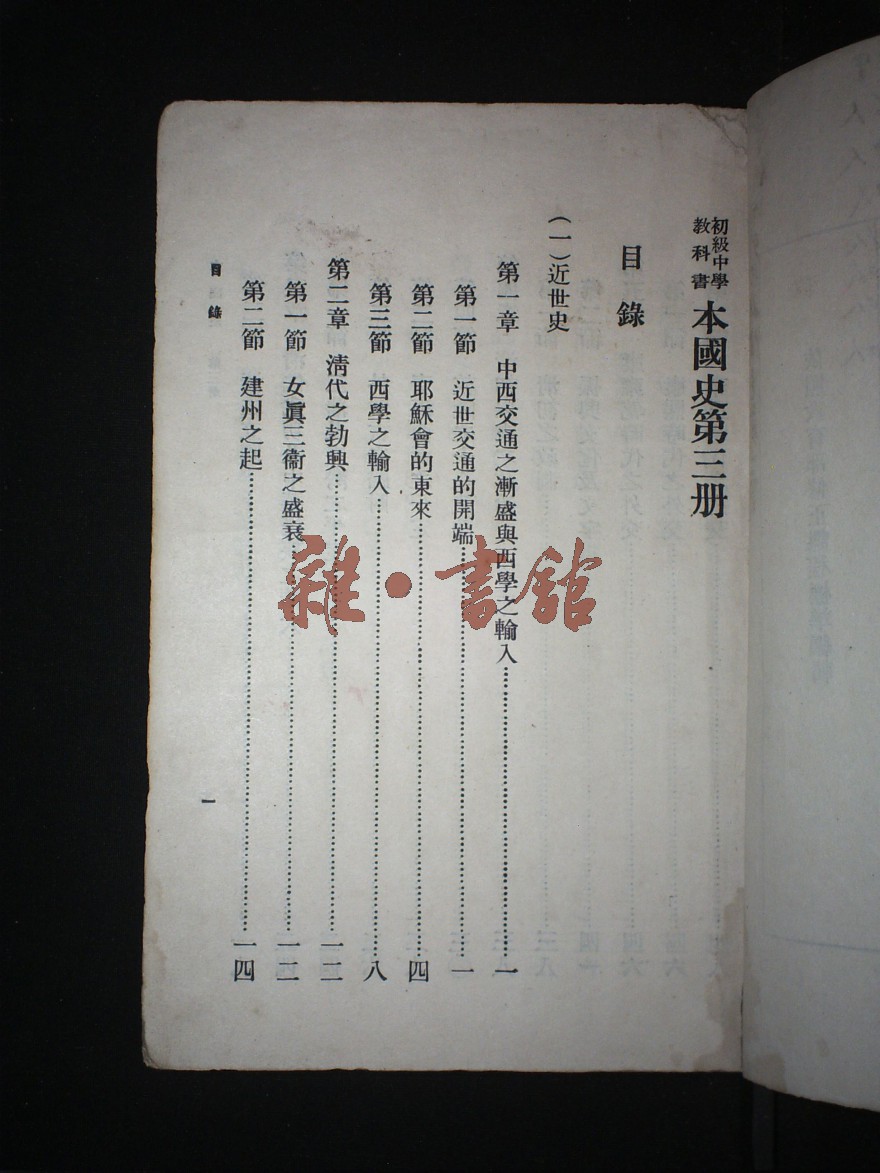 初級中學
教科書
本國史第三册
目錄
(一)近世史
第一章 中西交通之漸盛與西學之輸入……一
第一節 近世交通的開端……一
第二節 耶穌會的東來……四
第三節 西學之輸入……八
第二章 清代之勃興……一二
第一節 女眞三衞之盛衰……一二
第二節 建州之起……一四
目錄
一
雜·書館